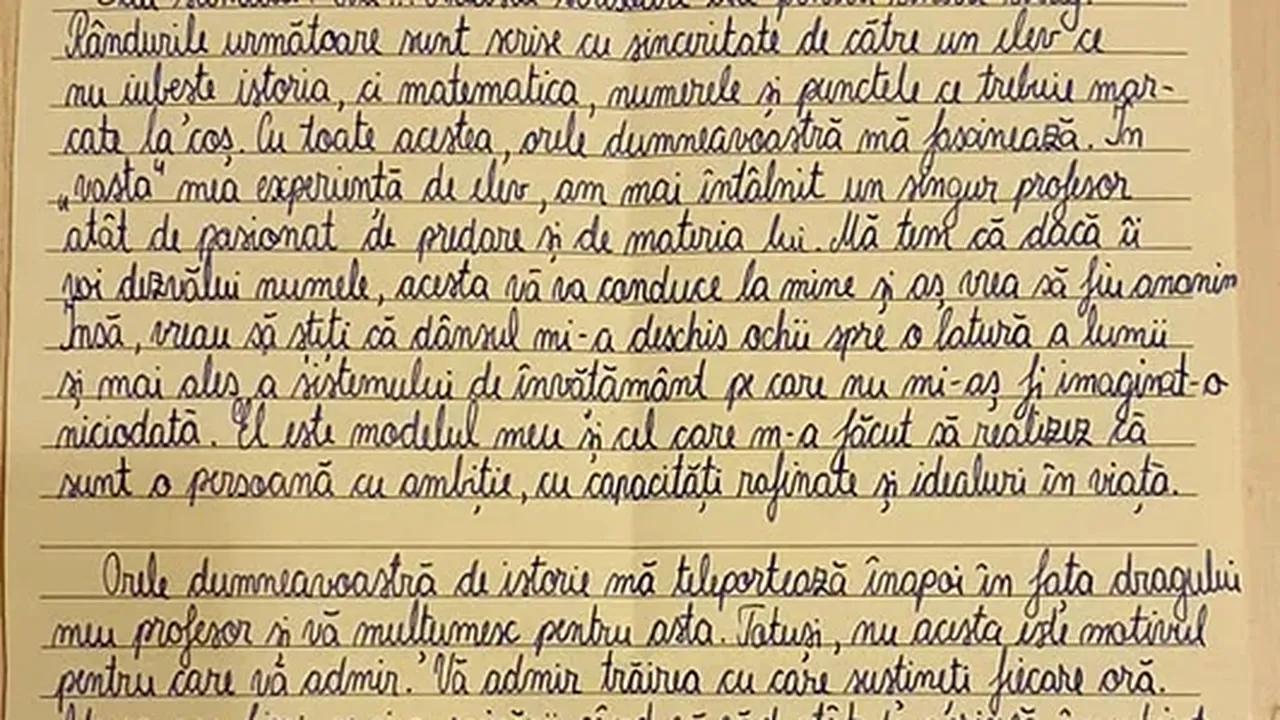 Rândurile următoare sunt scrise cu sinceritate de către un elev ce
nu iubește istoria, ci matematica, numerele și punctele ce trebuie mar-
cate la coș. Cu toate acestea, orele dumneavoastră mă fascinează. În
„vasta“ mea experiență de elev, am mai întâlnit un singur profesor
atât de pasionat de predare și de materia lui. Mă tem că dacă îi
voi dezvălui numele, acesta vă va conduce la mine și aș vrea să fiu anonim
Însă, vreau să știți că dânsul mi-a deschis ochii spre o latură a lumii
și mai ales a sistemului de învățământ pe care nu mi-aș fi imaginat-o
niciodată. El este modelul meu și cel care m-a făcut să realizez că
sunt o persoană cu ambiție, cu capacități rafinate și idealuri în viață.
Orele dumneavoastră de istorie mă teleportează înapoi în fața dragului
meu profesor și vă mulțumesc pentru asta. Totuși, nu acesta este motivul
pentru care vă admir. Vă admir trăirea cu care susțineți fiecare oră.